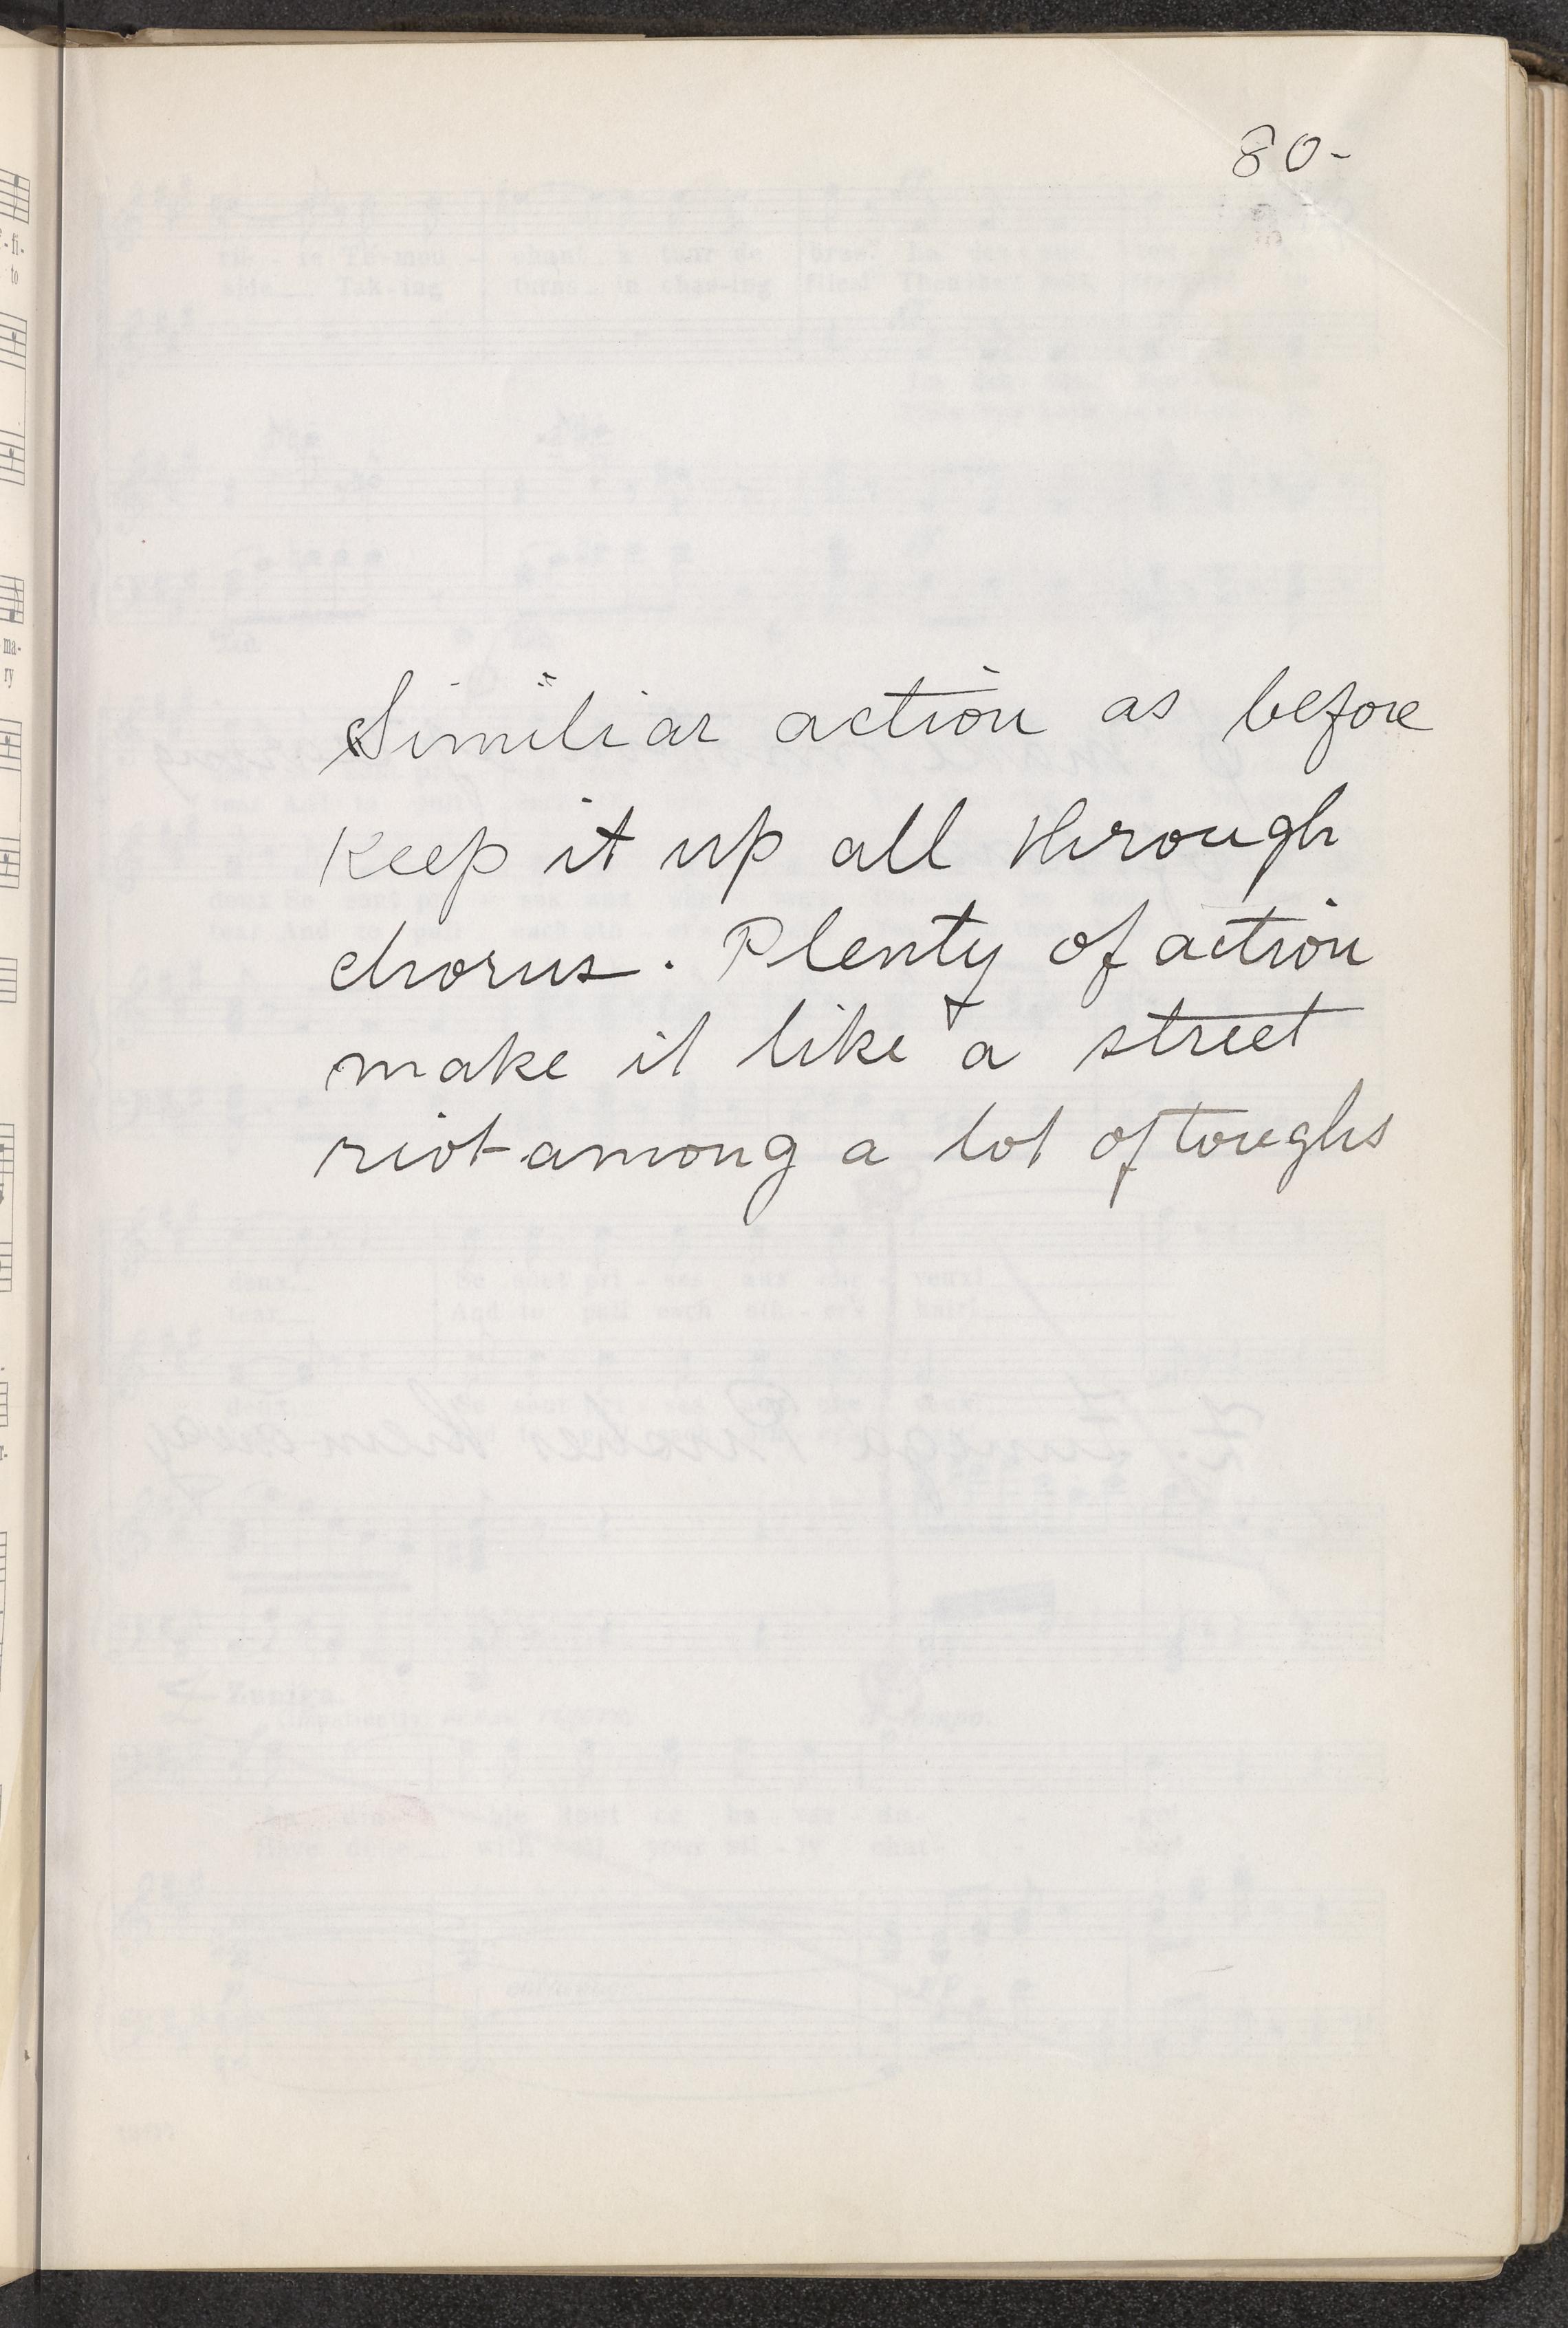 80-
Similiar action as before
Keep it up all through
chorus. Plenty of action
make it like a street
riot among a lot of toughs